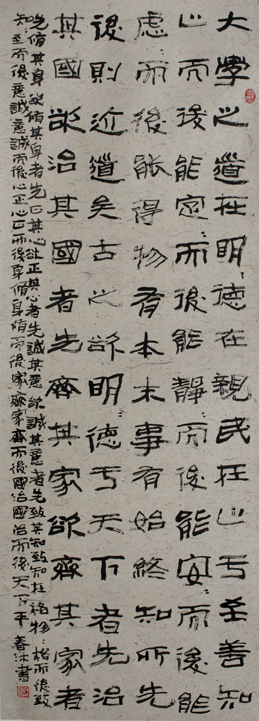 大學之道在明〻德在親民在止于至善知
止而後能定〻而後能靜〻而後能安〻而後能
慮〻而後能得物有本末事有始終知所先
後則近道矣古之欲明德于天下者先治
其國欲治其國者先齊其家欲齊其家者
先脩其身欲脩其身者先正其心欲正其心者先誠其意欲誠其意者先致其知致知在格物〻格而後致
知〻至而後意誠意誠而後心正心正而後身脩身脩而後家齊家齊而後國治國治而後天下平 春書